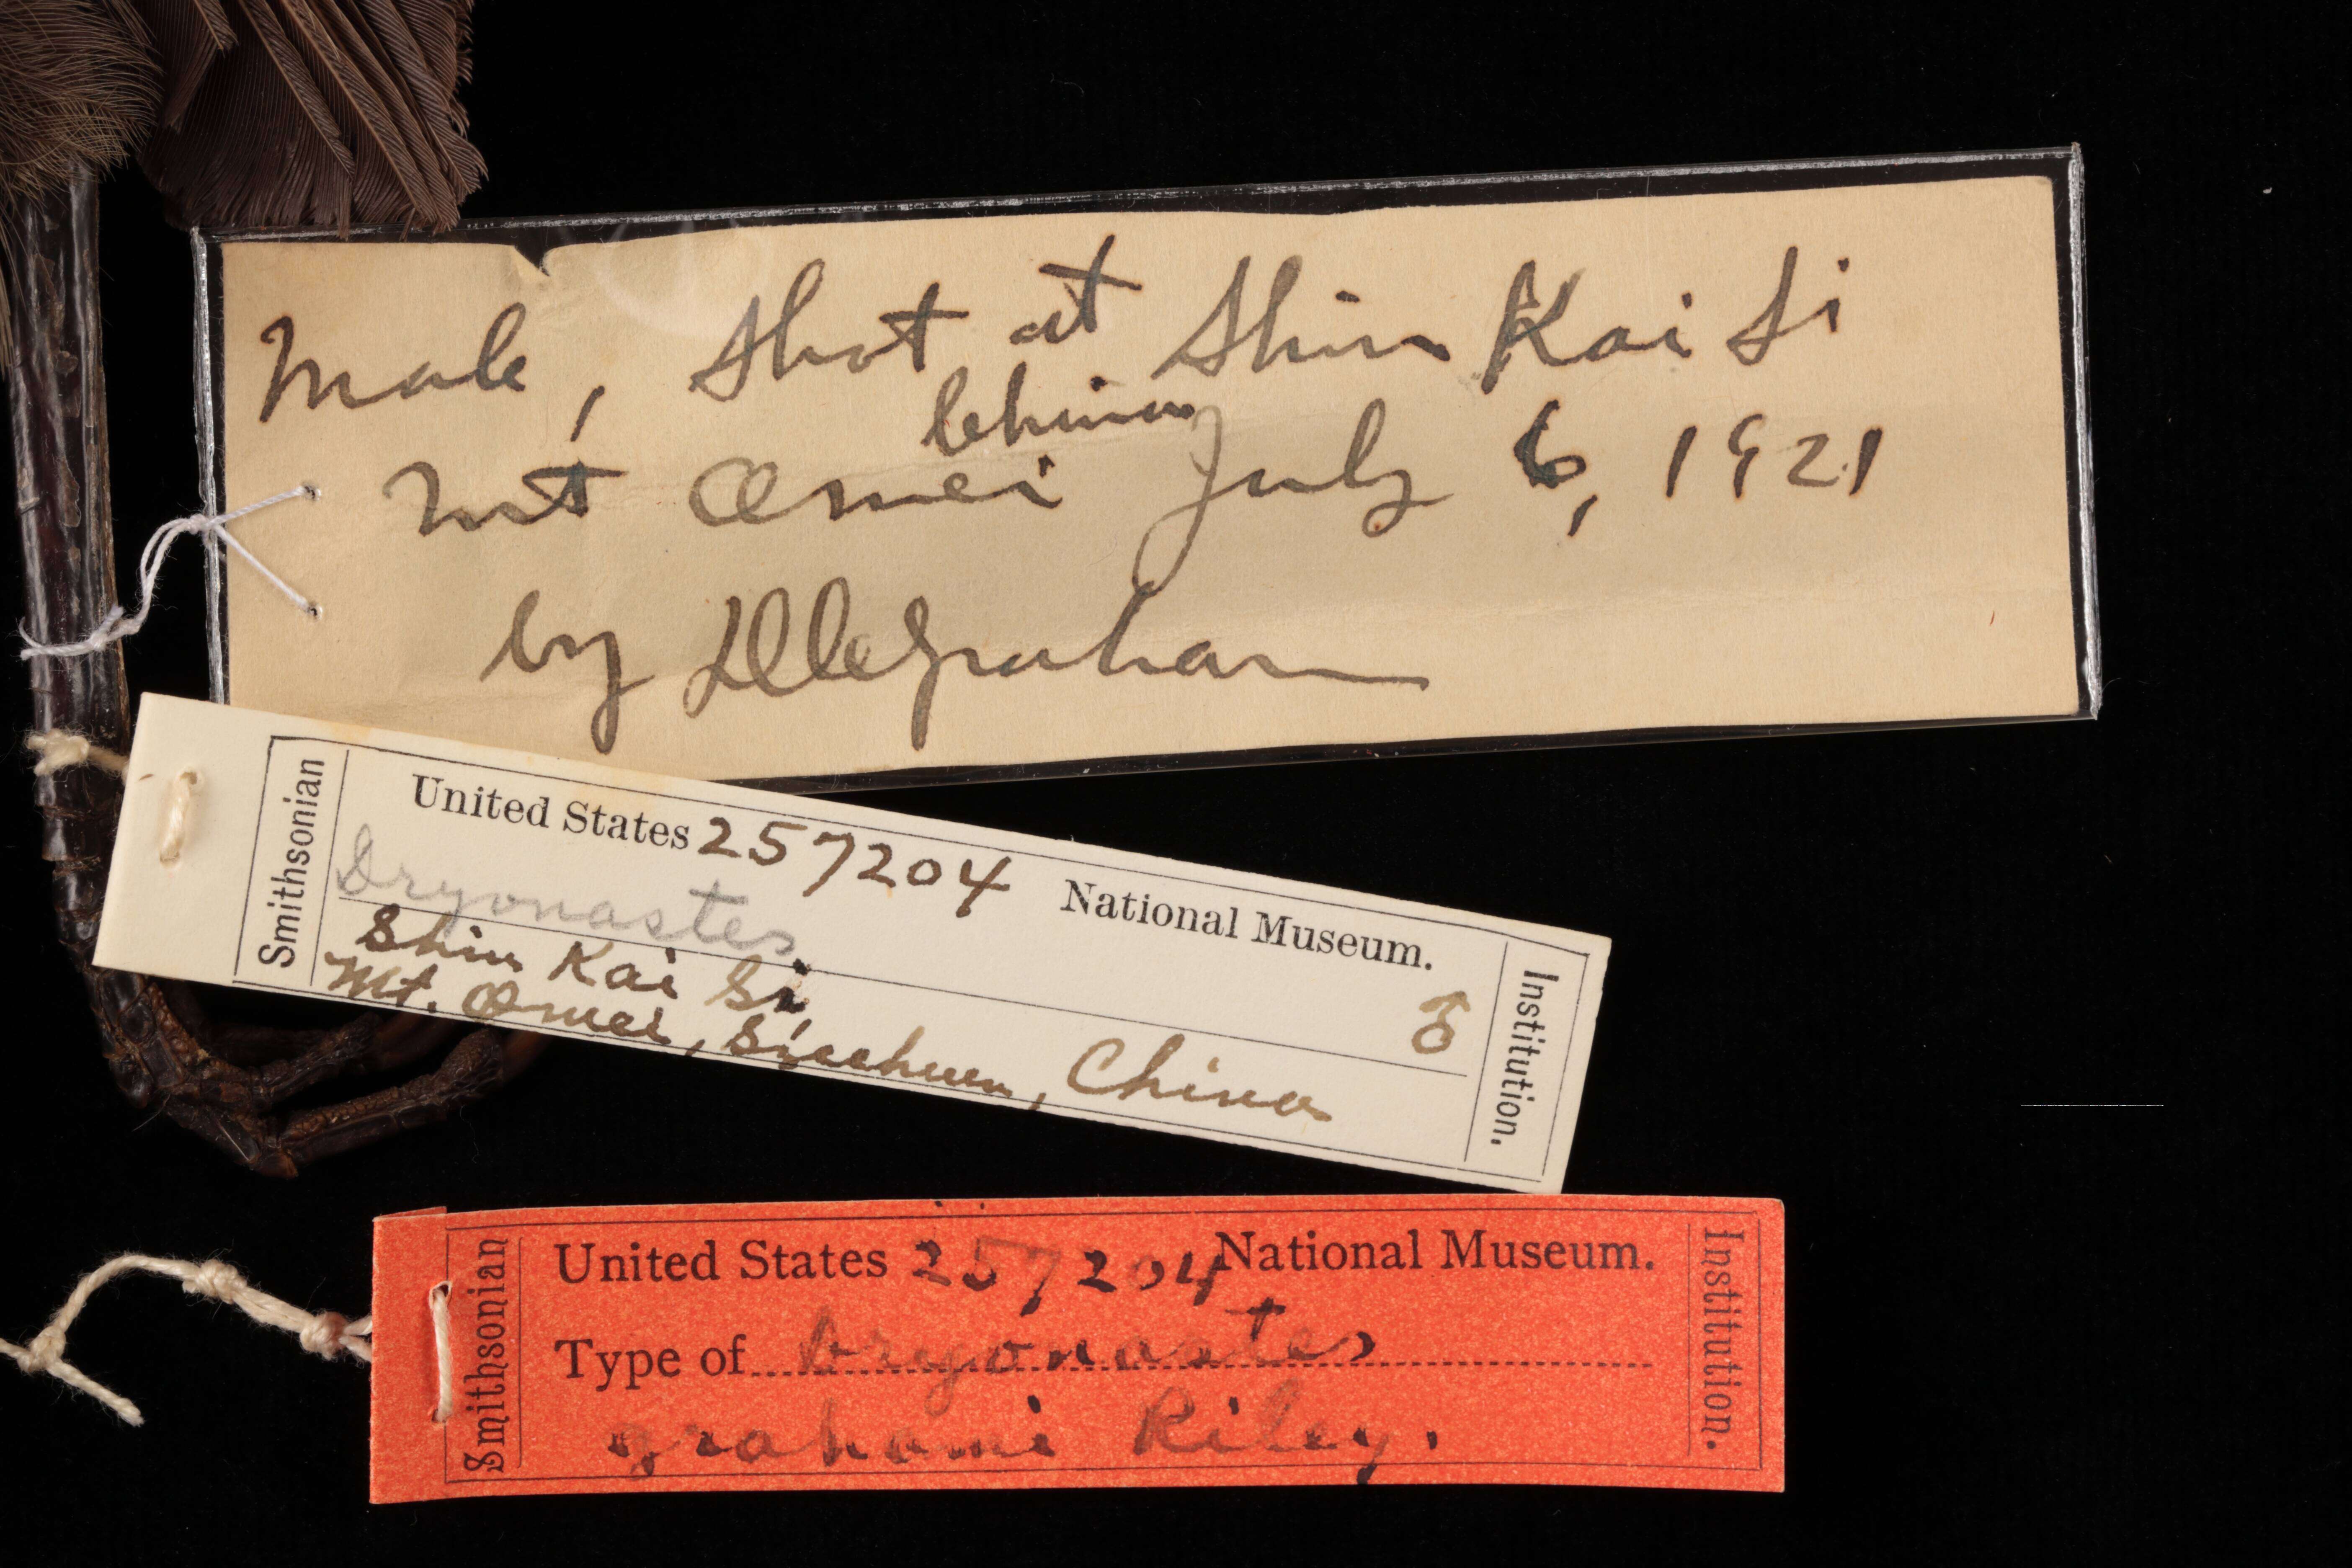 Male, Shot at Shin Kai Si
behind
Mt Omei July 6, 1921
by D C Graham
Smithsonian
United States 257204 National Museum.
Dryonastes
♂
Shin Kai Si,
Mt. Omei, Szechuan, China
Institution.
Smithsonian
United States 257204 National Museum.
Type of Dryonastes
grahami Riley.
Institution.